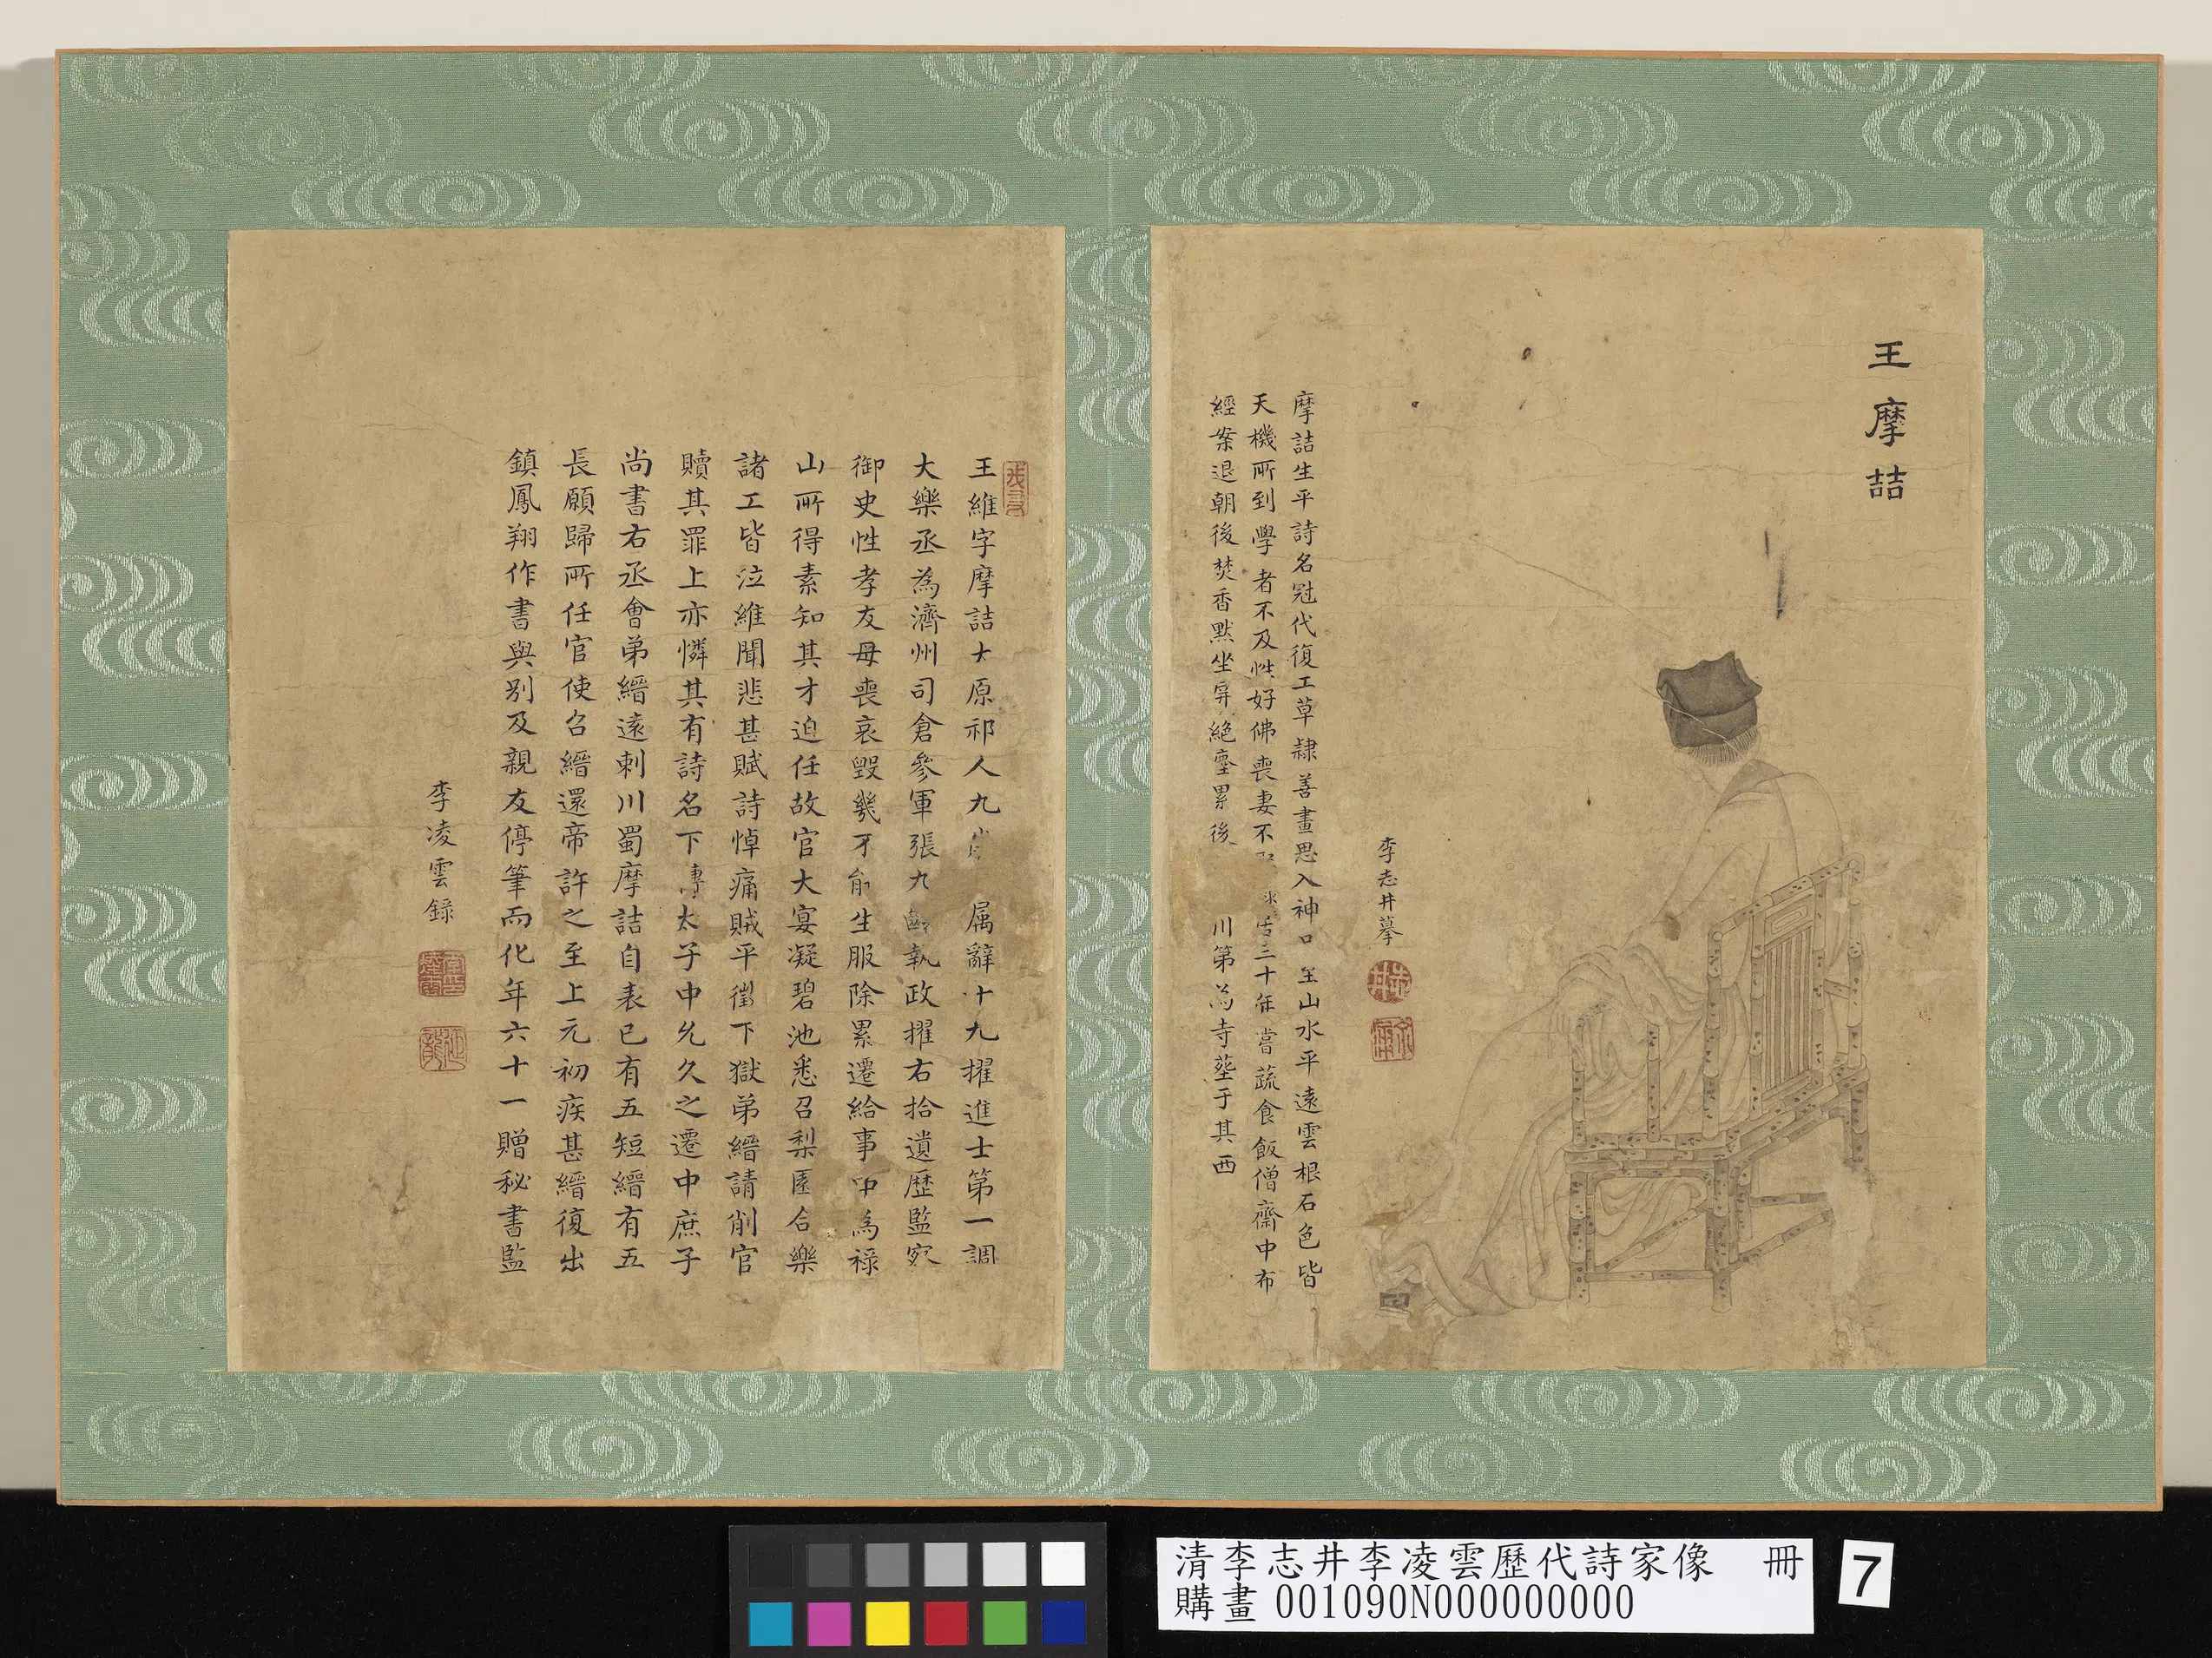 王摩詰
摩詰生平詩名冠代復工草隷善畫思入神 至山水平遠雲根石色皆
天機所到學者不及性好佛喪妻不 三十年嘗蔬食飯僧齋中布
經案退朝後焚香默坐屏絕塵累後 川第為寺塟于其西
李志井摹
王維字摩詰太原祁人九 属辭十九擢進士第一調
大樂丞為濟州司倉參軍張九齡執政擢右拾遺歷監察
御史性孝友母喪哀毀幾不能生服除累遷給事中為祿
山所得素知其才迫任故官大宴凝碧池悉召梨園合樂
諸工皆泣維聞悲甚賦詩悼痛賊平徵下獄弟縉請削官
贖其罪上亦憐其有詩名下 太子中允久之遷中庶子
尚書右丞會弟縉遠刺川蜀摩詰自表已有五短縉有五
長願歸所任官使召縉還帝許之至上元初疾甚縉復出
鎮鳳翔作書與別及親友停筆而化年六十一贈秘書監
李凌雲錄
清李志井李凌雲歷代詩家像 冊
購畫 001090N000000000
7